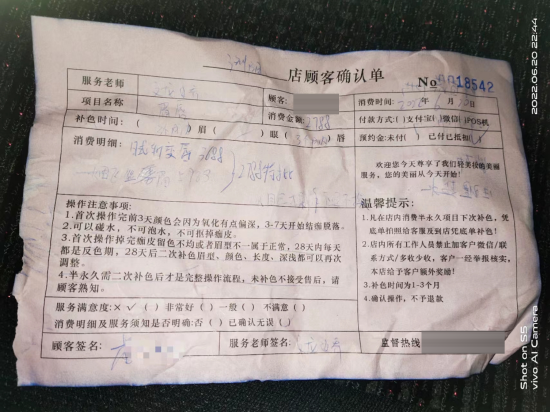 店顾客确认单
No 0018542
服务老师
顾客:
消费时间: 年 6 月 日
项目名称
消费金额: 3788
付款方式( )支付宝( )微信( )POS机
补色时间:( )眉( )眼( )唇
预约金:未付( )已付已抵扣( )
消费明细:
欢迎您今天尊享了我们轻美妆的美丽
服务,您的美丽从今天开始!
操作注意事项:
1.首次操作完前3天颜色会因为氧化有点偏深,3-7天开始结痂脱落。
2.可以碰水,不可泡水,不可抠掉痂皮。
3.首次操作掉完痂皮留色不均或者眉型不一属于正常,28天内每天
都是反色期,28天后二次补色眉型、颜色、长度、深浅都可以再次
调整。
4.半永久需二次补色后才是完整操作流程,未补色不接受售后,请
顾客熟知。
温馨提示:
1.凡在店内消费半永久项目下次补色,凭
底单拍照给客服及到店凭底单补色!
2.店内所有工作人员禁止加客户微信/联
系方式/多收少收,客户一经举报核实,
本店给予客户额外奖励!
3.补色时间为1-3个月
4.确认操作,不予退款
服务满意度:× √ ( )非常好( )一般( )不满意( )
消费明细及服务须知是否明确:否( )已确认无误( )
顾客签名:
服务老师签名:
监督热线
2022.06.20 22:44
Shot on S5
vivo AI Camera